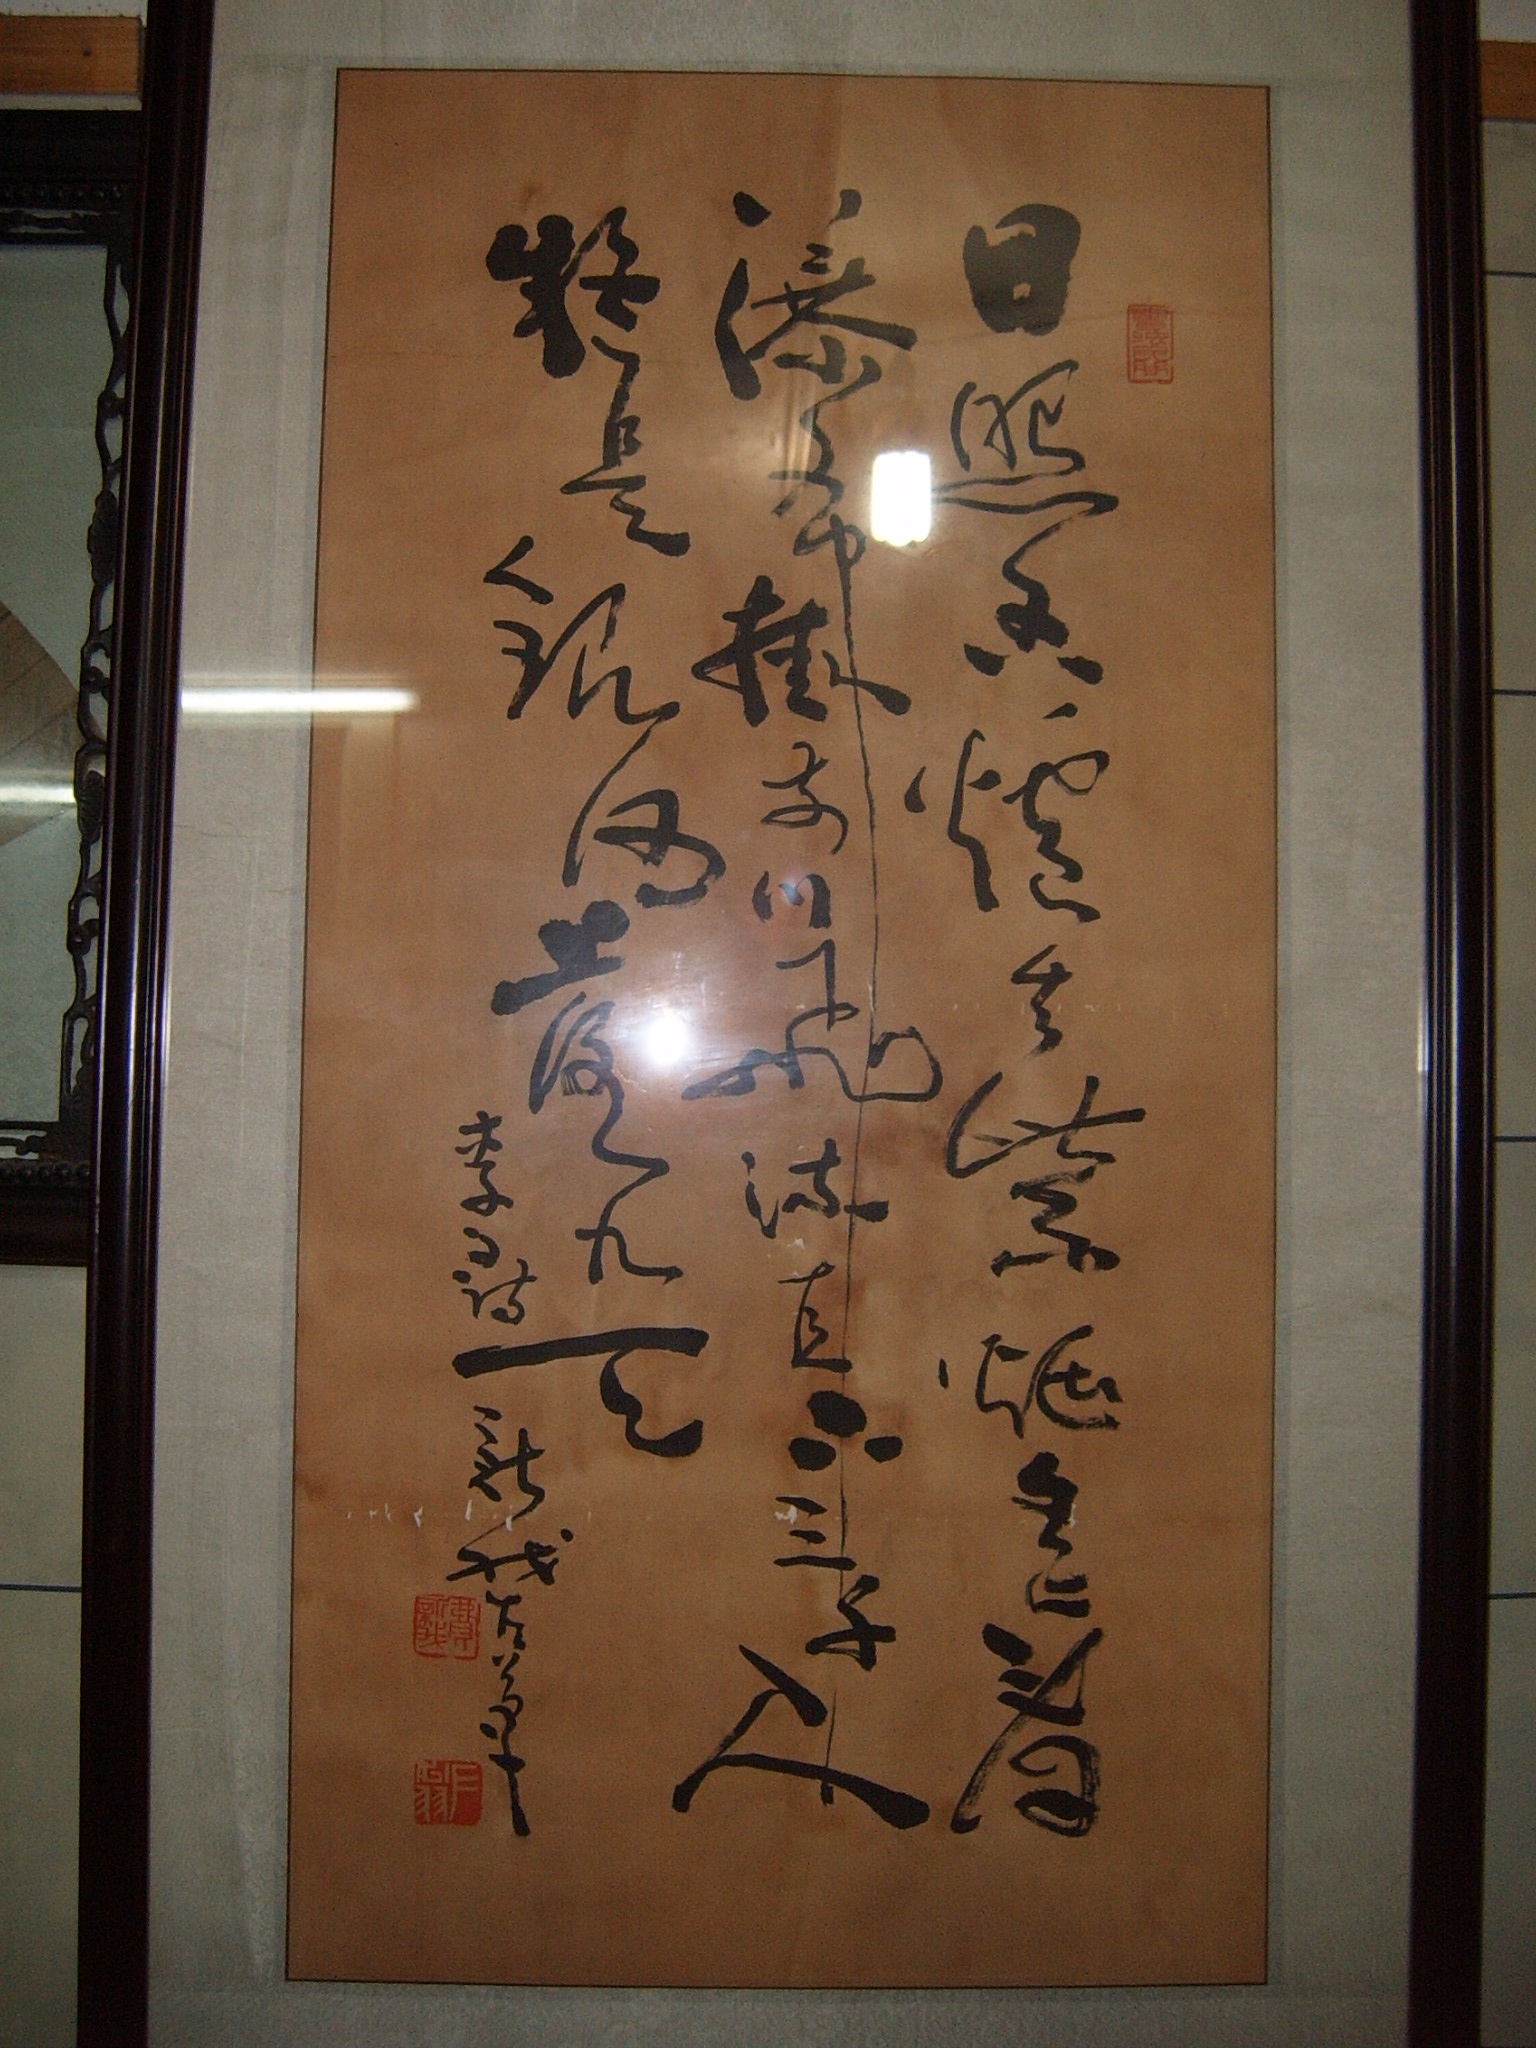 日照香爐生紫煙遙看
瀑布掛前川飛流直下三千尺
疑是銀河落九天
李白詩 新我左筆